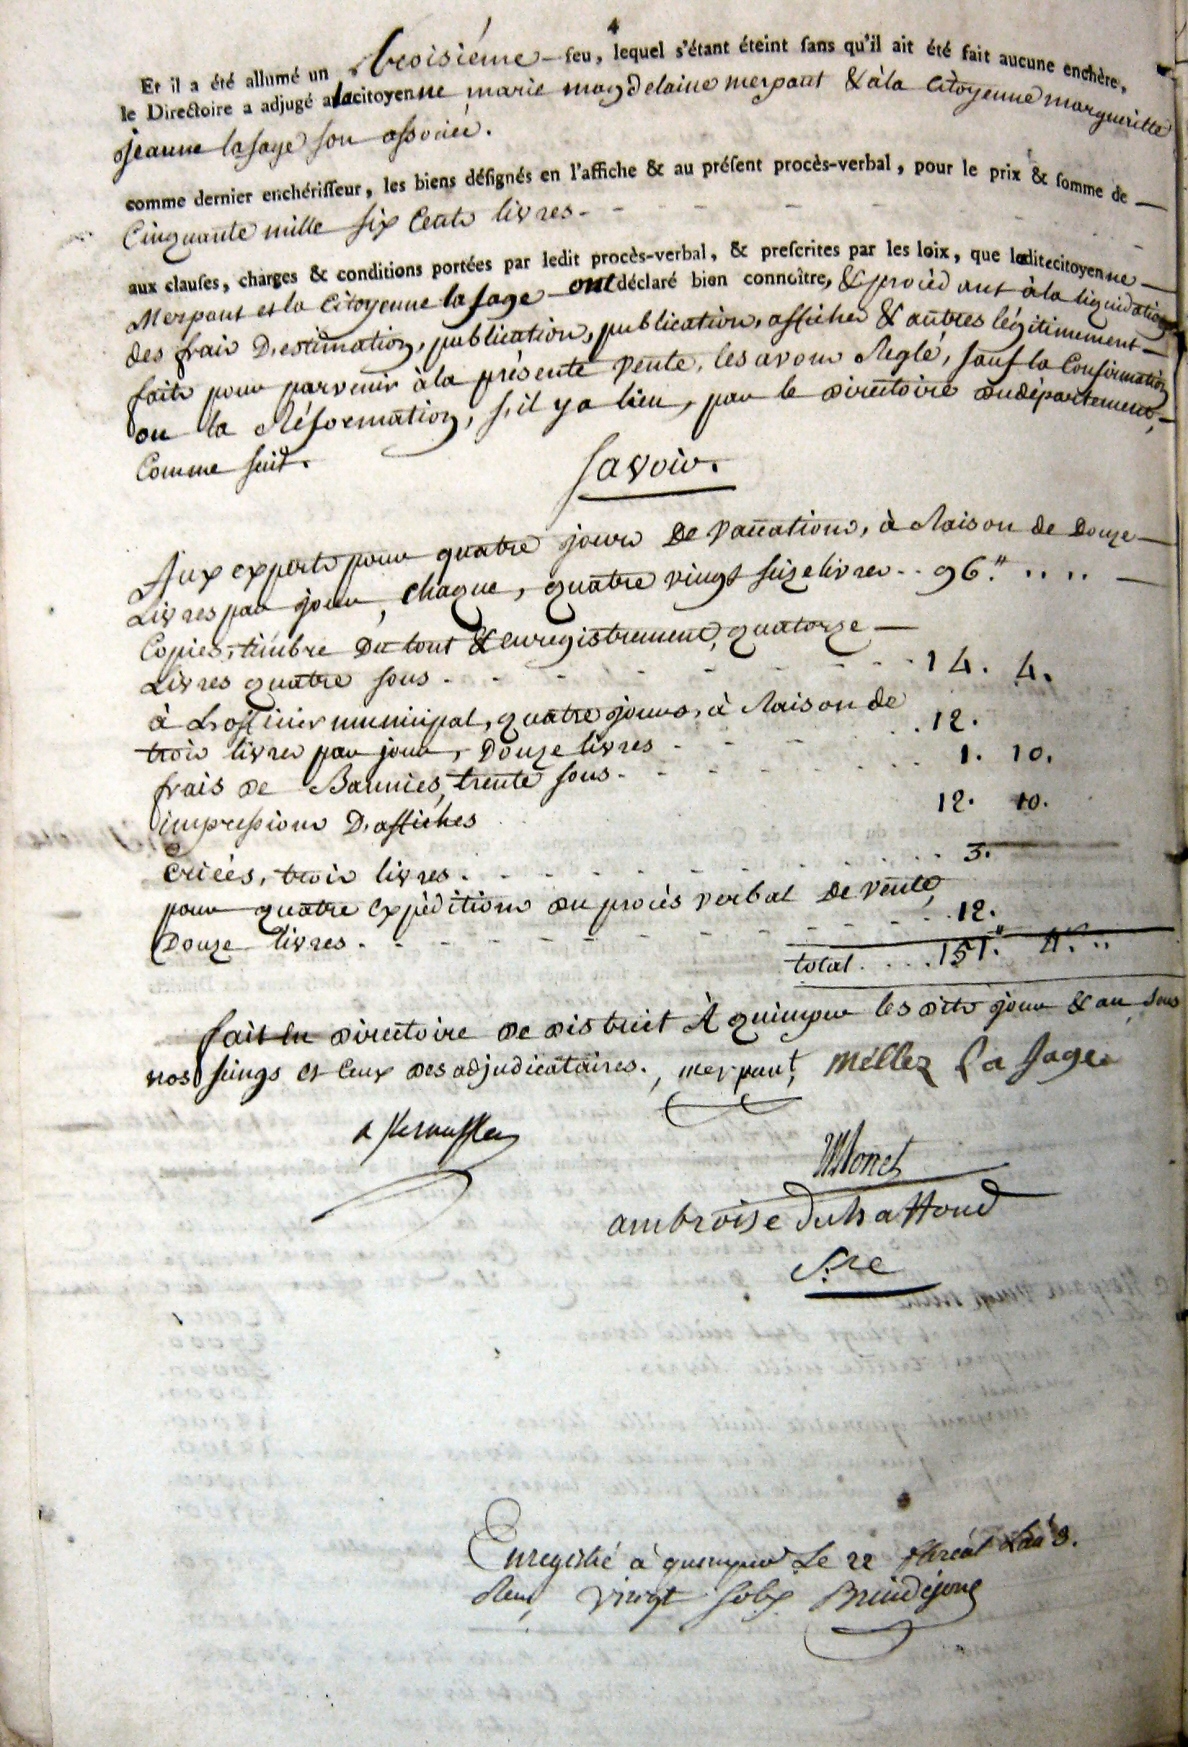 4
Et il a été allumé un troisiéme feu, lequel s'étant éteint sans qu'il ait été fait aucune enchère,
le Directoire a adjugé a la citoyenne marie magdelaine merpaut & à la Citoyenne margueritte
jeanne lasage son associée.
comme dernier enchérisseur, les biens désignés en l'affiche & au présent procès-verbal, pour le prix & somme de
Cinquante mille six Cents livres
aux clauses, charges & conditions portées par ledit procès-verbal, & prescrites par les loix, que laditecitoyenne
Merpaut et la Citoyenne la sage ont déclaré bien connoître, & procèdant à la liquidation
des frais D'estimation, publication, publication, affiches & autres légitimement
faits pour parvenir à la présente vente, les avons Reglé, sauf la Confirmation
ou la Réformation, s'il y a lieu, par le directoire du département,
Comme suit.
Savoir.
Aux experts pour quatre jours De vacations, à Raison de Douze
Livres par jour, chaque, quatre vingt seize livres .. 96." ....
Copies, timbre Du tout & enregistrement, quatorze
Livres quatre sous 14. 4.
à L'officier municipal, quatre jours, à Raison de
trois livres par jour, Douze livres 12.
frais de Bannies, trente sous 1. 10.
impressions D'affiches 12. 10.
Criées, trois livres 3.
pour quatre expèditions du procès verbal De vente,
Douze livres 12.
total .... 151." 4.
fait en directoire de district A quimper les dits jour & an, sous
nos seings et ceux des adjudicataires. merpaut, Méllez La Sage
Monet
ambroise Duhaffond
S.re
Enregistré à quimper Le 22 floréal L'an 3.
Reçu vingt sols Brindejonc